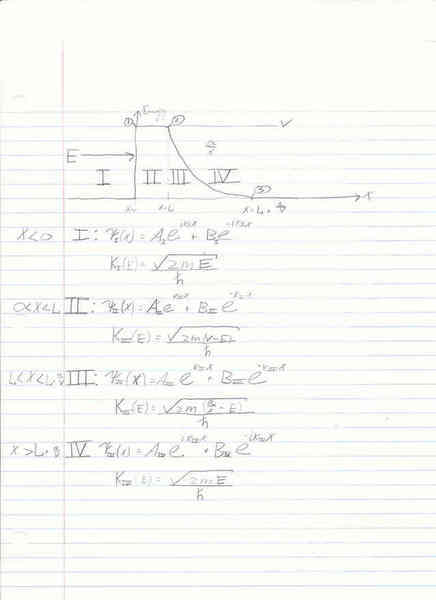 E
V
①
②
③
E
I II III IV
x
x=L
x<0 I: Ψ_I(x) = A_I e^{iK_I x} + B_I e^{-iK_I x}
K_I(E) = √(2mE) / ħ
0<x<L II: Ψ_II(x) = A_II e^{K_II x} + B_II e^{-K_II x}
K_II(E) = √(2m(V-E)) / ħ
III: Ψ_III(x) = A_III e^{K_III x} + B_III e^{-K_III x}
K_III(E) = - E) / ħ
IV Ψ_IV(x) = A_IV e^{iK_IV x} + B_IV e^{-iK_IV x}
K_IV(E) = √(2mE) / ħ